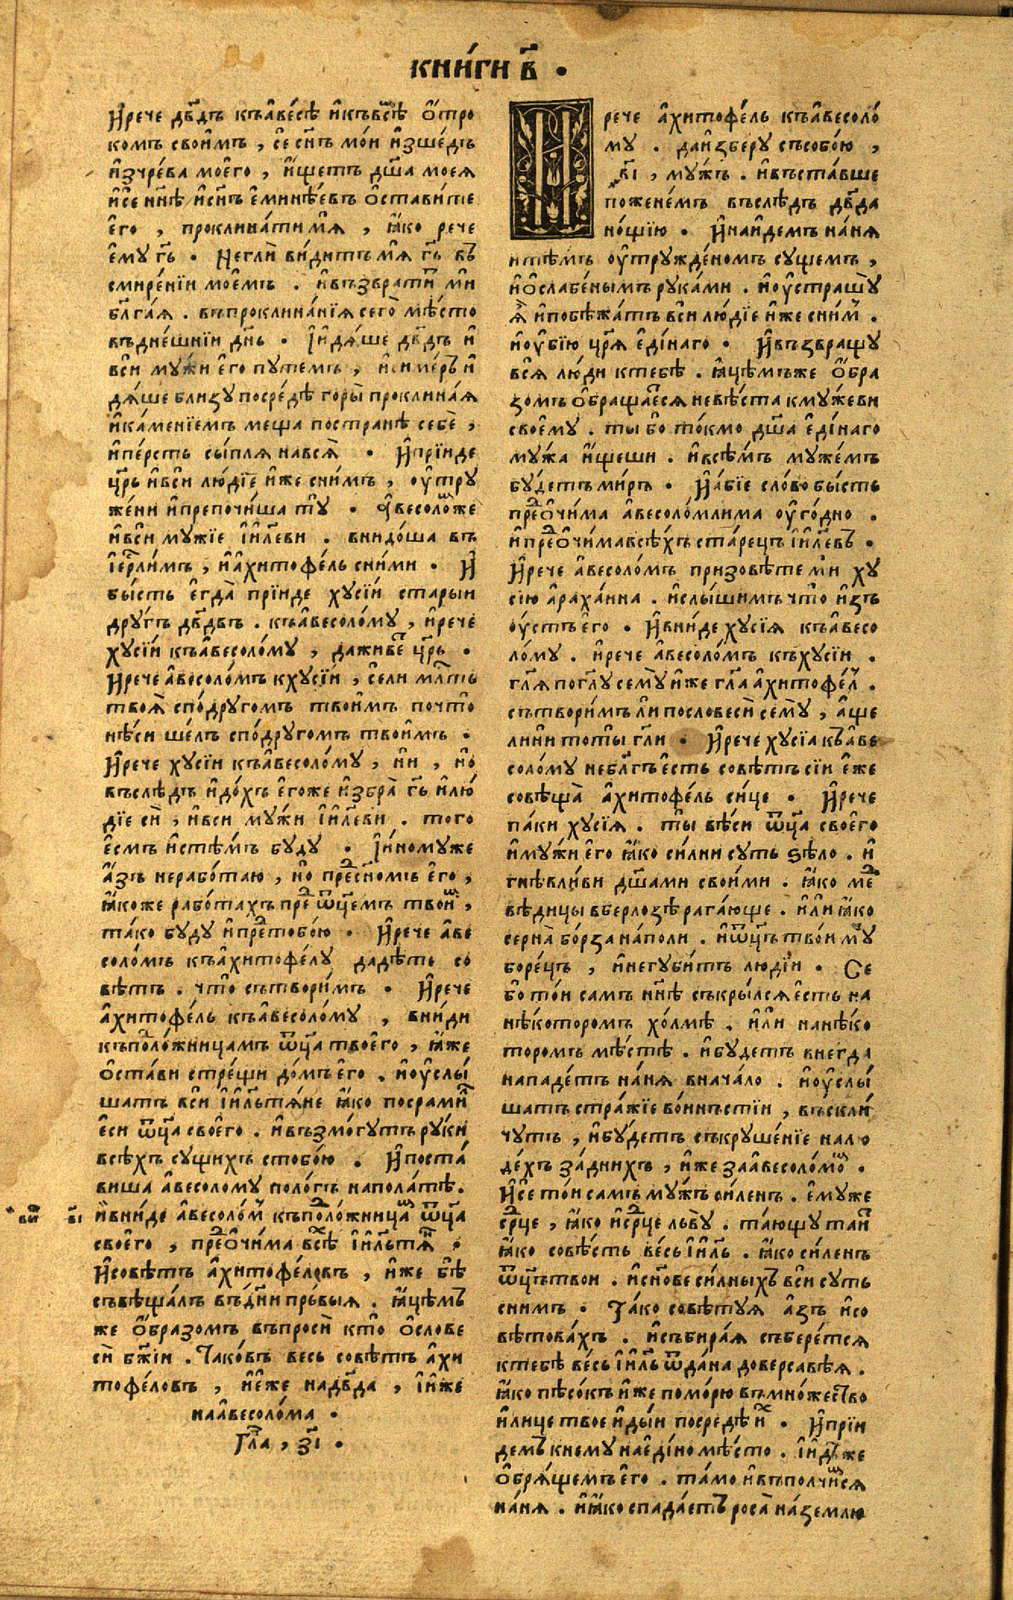 КНИ́ГИ В҃ ·
И҆рече дв҃дъ къа҆весѣ и҆къвсѣ о҆тро
комъ свои҆мъ , се сн҃ъ мо́и и҆зше́дъ
и҆зчре́ва моего̀ , и҆́щетъ дш҃а моея
и҆се нн҃ѣ и҆сн҃ъ е҆мине́евъ о҆ста́вите
е҆го̀ , проклина́ти мя̀ , ꙗ҆́ко рече
е҆му гь҃ · Не́гли ви́дитъ мя̀ гь҃ въ
смире́нїи мое́мъ . и҆възврати́т ми
бл҃га́я . въпроклина́нїя сего̀ мѣ́сто
въдне́шнїи дн҃ь · І҆идя́ше дв҃дъ и҆
вси му́жи е҆го путе́мъ ,
дя́ше бли́зу посре́дѣ горы̀ проклина́я
и҆ка́менїемъ меща постранѣ̀ себѐ ,
и҆пе́рсть сы́пля нався̀ · И҆прїиде
цр҃ь и҆вси лю́дїе и҆же сни́мъ , оу҆тру
же́ни и҆препочи́ша ту̀ · А҆весоло́м же
и҆вси му́жїе і҆и҃леви . внидо́ша въ
і҆ер҃ли́мъ , и҆а҆хитофе́ль сни́ми · И҆
бы́сть е҆гда̀ прїи́де хусі́и старыи
дру́гъ дв҃двъ . къа҆весоло́му , и҆рече
хусі́и къа҆весоло́му , дажи́ве цр҃ь ·
И҆рече а҆весоло́мъ кхусі́и , се́ли мл҃ть
твоя̀ спо́другомъ твои́мъ почто̀
нѣ́си ше́лъ спо́другомъ твои́мъ ·
И҆рече хусі́и къа҆весоло́му , нѝ , но̀
въслѣ́дъ и҆до́хъ е҆го́же и҆збра̀ гь҃ и҆лю́
дїе сѝ , и҆вси му́жи і҆и҃леви . того
е҆смъ и҆стѣ́мъ бу́ду · І҆и҆нomуже
а҆́зъ нерабо́таю , но̀ пре́дсы҃номъ е҆го̀ ,
ꙗ҆́коже рабо́тахъ пред ѿц҃емъ твои́м ,
та́ко бу́ду и҆пред тобо́ю · И҆рече а҆ве
соло́мъ къа҆хитофе́лу дади́те со
вѣ́тъ . что̀ сътвори́мъ · И҆рече
а҆хитофе́ль къа҆весоло́му , вни́ди
къполо́жницамъ ѿц҃а твоего̀ , ꙗ҆́же
о҆ста́ви стрещѝ до́мъ е҆го̀ . и҆оу҆слы́
шатъ вси і҆и҃льтя́не ꙗ҆́ко посрами́л
е҆си ѿц҃а своего̀ . и҆възмо́гутъ ру́ки
всѣ́хъ су́щихъ стобо́ю · И҆поста́
виша а҆весоло́му поло́гъ напола́тѣ .
вн́и вı҃ и҆вни́де а҆весоло́м къполо́жница́м ѿц҃а
своего̀ , пред о҆чима всѣх і҆и҃льтян .
И҆совѣ́тъ а҆хитофе́ловъ , и҆́же бѣ̀
съвѣща́лъ въдни́ пръвыя . ꙗ҆́цѣмъ
же о҆́бразомъ въпросѝ кто̀ о҆слове
сѝ бж҃іи . Тако́въ весь совѣ́тъ а҆хи
тофе́ловъ , и҆е҆́же надв҃да , і҆и҆же
наа҆весоло́ма ·
Гл҃а , зı҃ ·
И҆рече а҆хитофе́ль къа҆весоло́
му . даи҆зберу̀ съсобо́ю ,
вı҃ , му́жъ . и҆въста́вше
пожене́мъ въслѣ́дъ дв҃да
но́щїю · И҆наи҆демъ на́ня
и тѣ́мъ оу҆тружде́номъ су́щемъ ,
и҆о҆сла́бенымъ рука́ми . и҆оу҆страшу̀
я҆̀ и҆побѣжа́тъ вси лю́дїе и҆же сни́м .
и҆оу҆бі́ю цр҃я е҆ди́наго · И҆възвращу
вся лю́ди ктебѣ̀ . ꙗ҆́цѣмъже о҆́бра
зомъ о҆браща́ется невѣ́ста кму́жеви
своему̀ . ты̀ бо то́кмо дш҃а е҆ди́наго
му́жа и҆́щеши . и҆всѣ́мъ муже́мъ
бу́детъ ми́ръ · И҆а҆́бїе сло́во бы́сть
пред о҆чи́ма а҆весоло́млима оу҆го́дно .
и҆пред о҆чи́ма всѣ́хъ ста́рецъ і҆и҃левъ .
И҆рече а҆весоло́мъ призовѣ́те мѝ ху
сі́ю а҆раха́нина . и҆слы́шимъ что̀ и҆зъ
оу҆стъ е҆го̀ · И҆вни́де хусі́я къа҆весо
ло́му . и҆рече а҆весоло́мъ къхусі́и .
гл҃я погл҃у сему̀ и҆же гл҃а а҆хитофе́л .
сътвори́мъ лѝ пословесѝ сему̀ , а҆ще
линѝ то ты̀ гл҃и · И҆рече хусі́а къа҆ве
соло́му небл҃гъ е҆́сть совѣ́тъ сіи е҆́же
совѣща̀ а҆хитофе́ль си́це · И҆рече
па́ки хусі́я . ты̀ вѣ́си ѿц҃а своего̀
и҆му́жи е҆го ꙗ҆́ко си́лни суть ѕѣло̀ . и҆
гнѣвли́ви дш҃ами свои́ми . ꙗ҆́ко мед
вѣ́дицы вберло́зѣ рага́юще . и҆лѝ ꙗ҆́ко
серна̀ бо́рза на́поли . и҆ѿц҃ъ тво́и му́ж
боре́цъ , и҆негуби́тъ люді́и · Се
бо то́и самъ нн҃ѣ съкры́лся е҆́сть на
нѣ́которомъ хо́лмѣ . и҆лѝ нанѣ́ко
торомъ мѣ́стѣ . и҆бу́детъ внегда
нападе́тъ на́ня внача́ло . и҆оу҆слы́
шатъ стра́жїе во́инъстіи , въскли́
чутъ , и҆бу́детъ съкруше́нїе на лю
де́хъ за́днихъ , и҆́же заа҆весоло́мом .
И҆се то́и самъ му́жъ си́ленъ . е҆му́же
се́рдце , ꙗ҆́ко и҆се́рдце льву̀ . та́ющу та́ит
ꙗ҆́ко совѣ́сть ве́сь і҆и҃ль . ꙗ҆́ко си́ленъ
ѿц҃ъ твои . и҆сн҃ове си́лныхъ вси суть
сни́мъ · Та́ко совѣ́туя а҆зъ и҆со
вѣ́товахъ . и҆събира́я събере́тся
ктебѣ̀ ве́сь і҆и҃ль ѿда́на доверсаве́я .
ꙗ҆́ко пѣсо́къ и҆́же помо́рю въмно́жество
и҆лице твое и҆ды́и посредѣ̀ и҆х · И҆прїи
демъ кнему наеди́но мѣ́сто . і҆и҆дѣ́же
о҆бря́щемъ е҆го̀ . та́мо и҆въполчи́мся
на́ня . и҆ꙗ҆́ко спада́етъ роса̀ на́землю